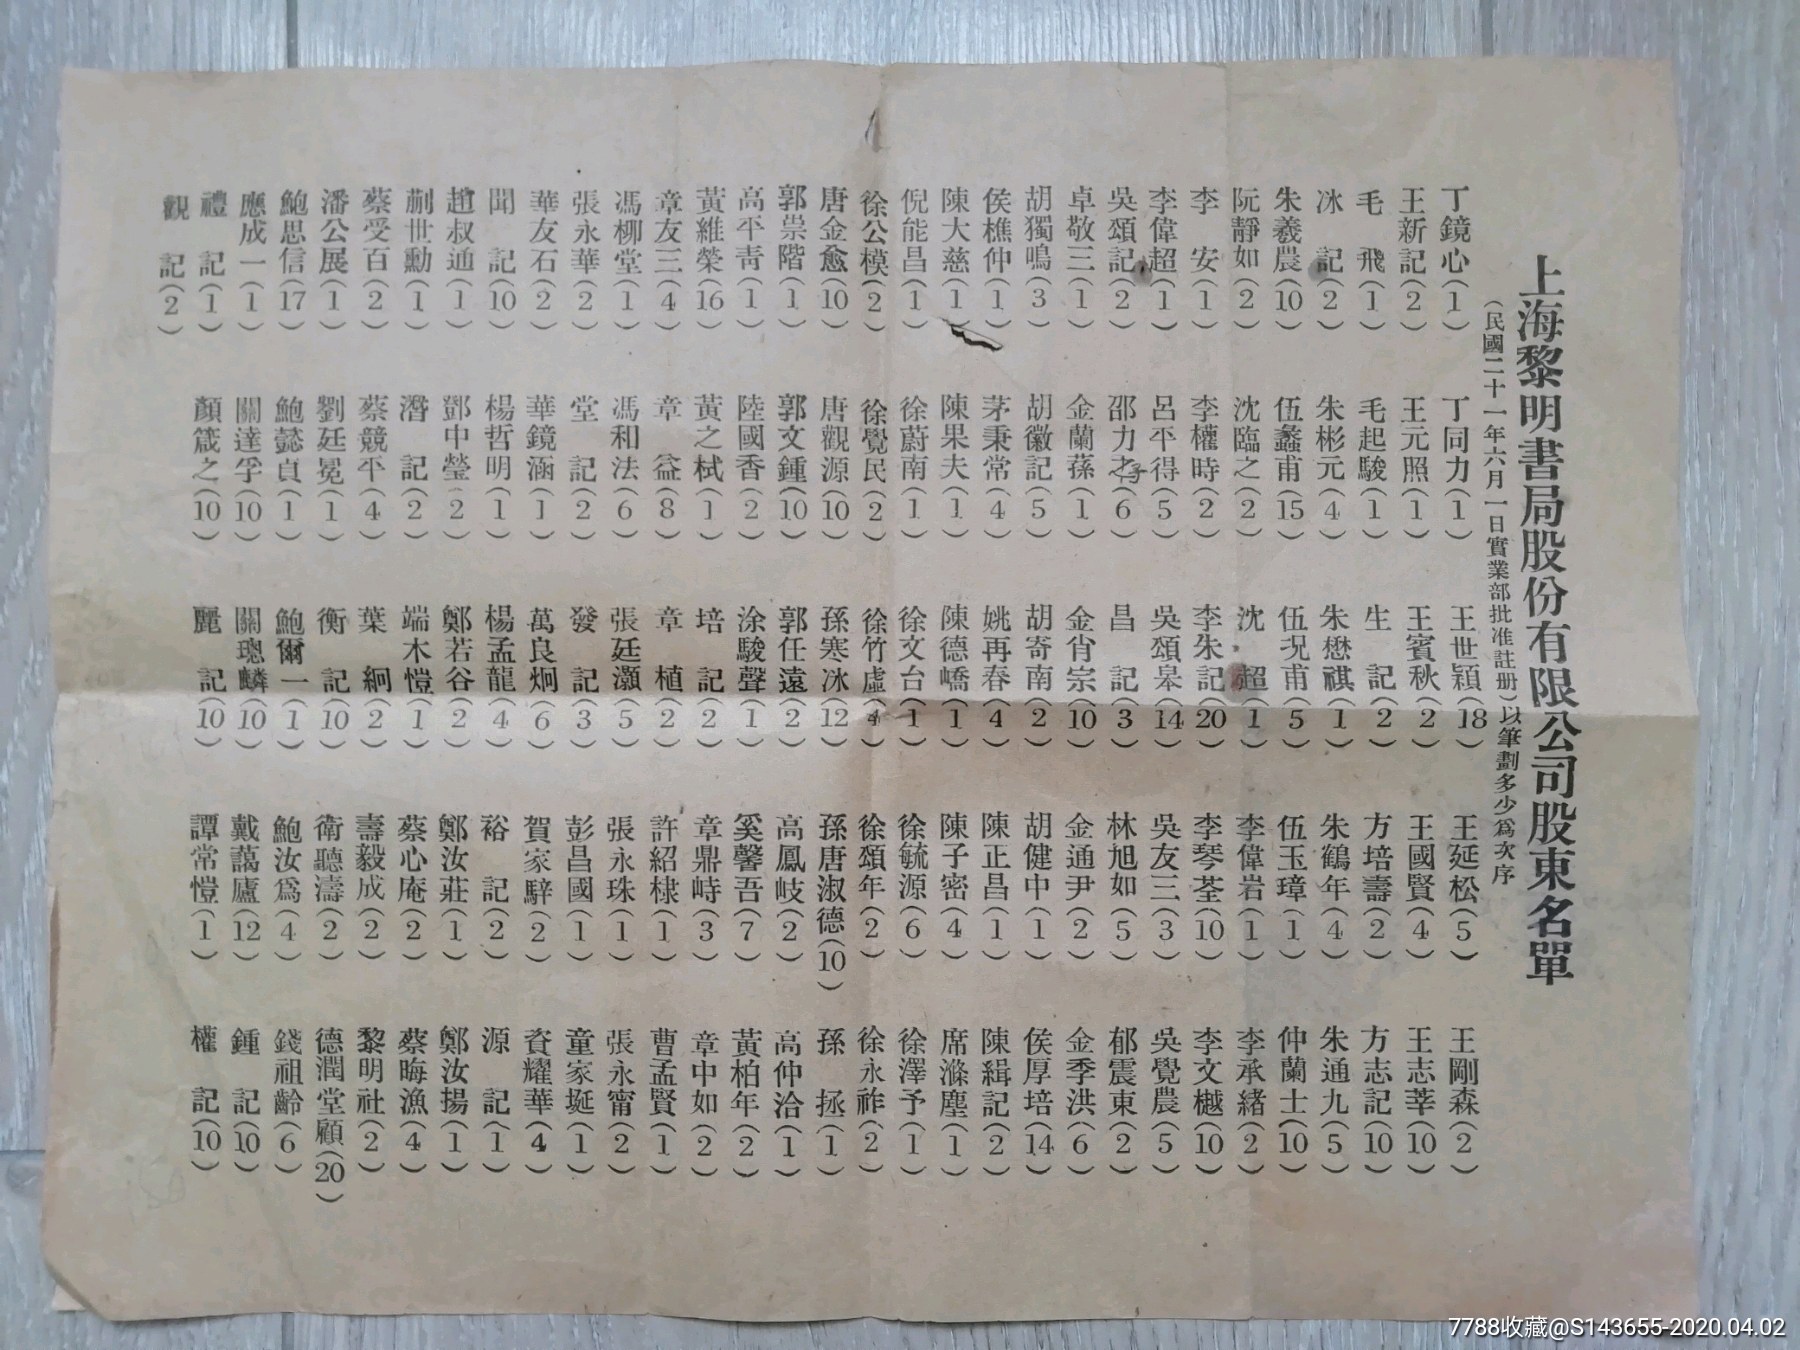 上海黎明書局股份有限公司股東名單
（民國二十一年六月一日實業部批准註册）以筆劃多少爲次序
丁鏡心（1） 丁同力（1） 王世穎（18） 王延松（5） 王剛森（2）
王新記（2） 王元照（1） 王賓秋（2） 王國賢（4） 王志莘（10）
毛飛（1） 毛起駿（1） 生記（2） 方培壽（2） 方志記（10）
冰記（2） 朱彬元（4） 朱懋祺（1） 朱鶴年（4） 朱通九（5）
朱羲農（10） 伍蠡甫（15） 伍況甫（5） 伍玉璋（1） 仲蘭士（10）
阮靜如（2） 沈臨之（2） 沈超（1） 李偉岩（1） 李承緒（2）
李安（1） 李權時（2） 李朱記（20） 李琴荃（10） 李文樾（10）
李偉超（1） 呂平得（5） 吳頌皋（14） 吳友三（3） 吳覺農（5）
吳頌記（2） 邵力子（6） 昌記（3） 林旭如（5） 郁震東（2）
卓敬三（1） 金蘭蓀（1） 金肖宗（10） 金通尹（2） 金季洪（6）
胡獨鳴（3） 胡徽記（5） 胡寄南（2） 胡健中（1） 侯厚培（14）
侯樵仲（1） 茅秉常（4） 姚再春（4） 陳正昌（1） 陳緝記（2）
陳大慈（1） 陳果夫（1） 陳德嶠（1） 陳子密（4） 席滌塵（1）
倪能昌（1） 徐蔚南（1） 徐文台（1） 徐毓源（6） 徐澤予（1）
徐公模（2） 徐覺民（2） 徐竹虛（4） 徐頌年（2） 徐永祚（2）
唐金愈（10） 唐觀源（10） 孫寒冰（12） 孫唐淑德（10） 孫拯（1）
郭崇階（1） 郭文鍾（10） 郭任遠（2） 高鳳岐（2） 高仲洽（1）
高平靑（1） 陸國香（2） 涂駿聲（1） 奚馨吾（7） 黃柏年（2）
黃維榮（16） 黃之栻（1） 培記（2） 章鼎峙（3） 章中如（2）
章友三（4） 章益（8） 章植（2） 許紹棣（1） 曹孟賢（1）
馮柳堂（1） 馮和法（6） 張廷灝（5） 張永珠（1） 張永甯（2）
張永華（2） 堂記（2） 發記（3） 彭昌國（1） 童家埏（1）
華友石（2） 華鏡涵（1） 萬良炯（6） 賀家騂（2） 資耀華（4）
聞記（10） 楊哲明（1） 楊孟龍（4） 裕記（2） 源記（1）
趙叔通（1） 鄧中瑩（2） 鄭若谷（2） 鄭汝莊（1） 鄭汝揚（1）
蒯世勳（1） 潛記（2） 端木愷（1） 蔡心庵（2） 蔡晦漁（4）
蔡受百（2） 蔡競平（4） 葉絅（2） 壽毅成（2） 黎明社（2）
潘公展（1） 劉廷冕（1） 衡記（10） 衛聽濤（2） 德潤堂顧（20）
鮑思信（17） 鮑懿貞（1） 鮑爾一（1） 鮑汝爲（4） 錢祖齡（6）
應成一（1） 關達孚（10） 關璁麟（10） 戴藹廬（12） 鍾記（10）
禮記（1） 顏箴之（10） 麗記（10） 譚常愷（1） 權記（10）
觀記（2）
7788收藏@S143655-2020.04.02